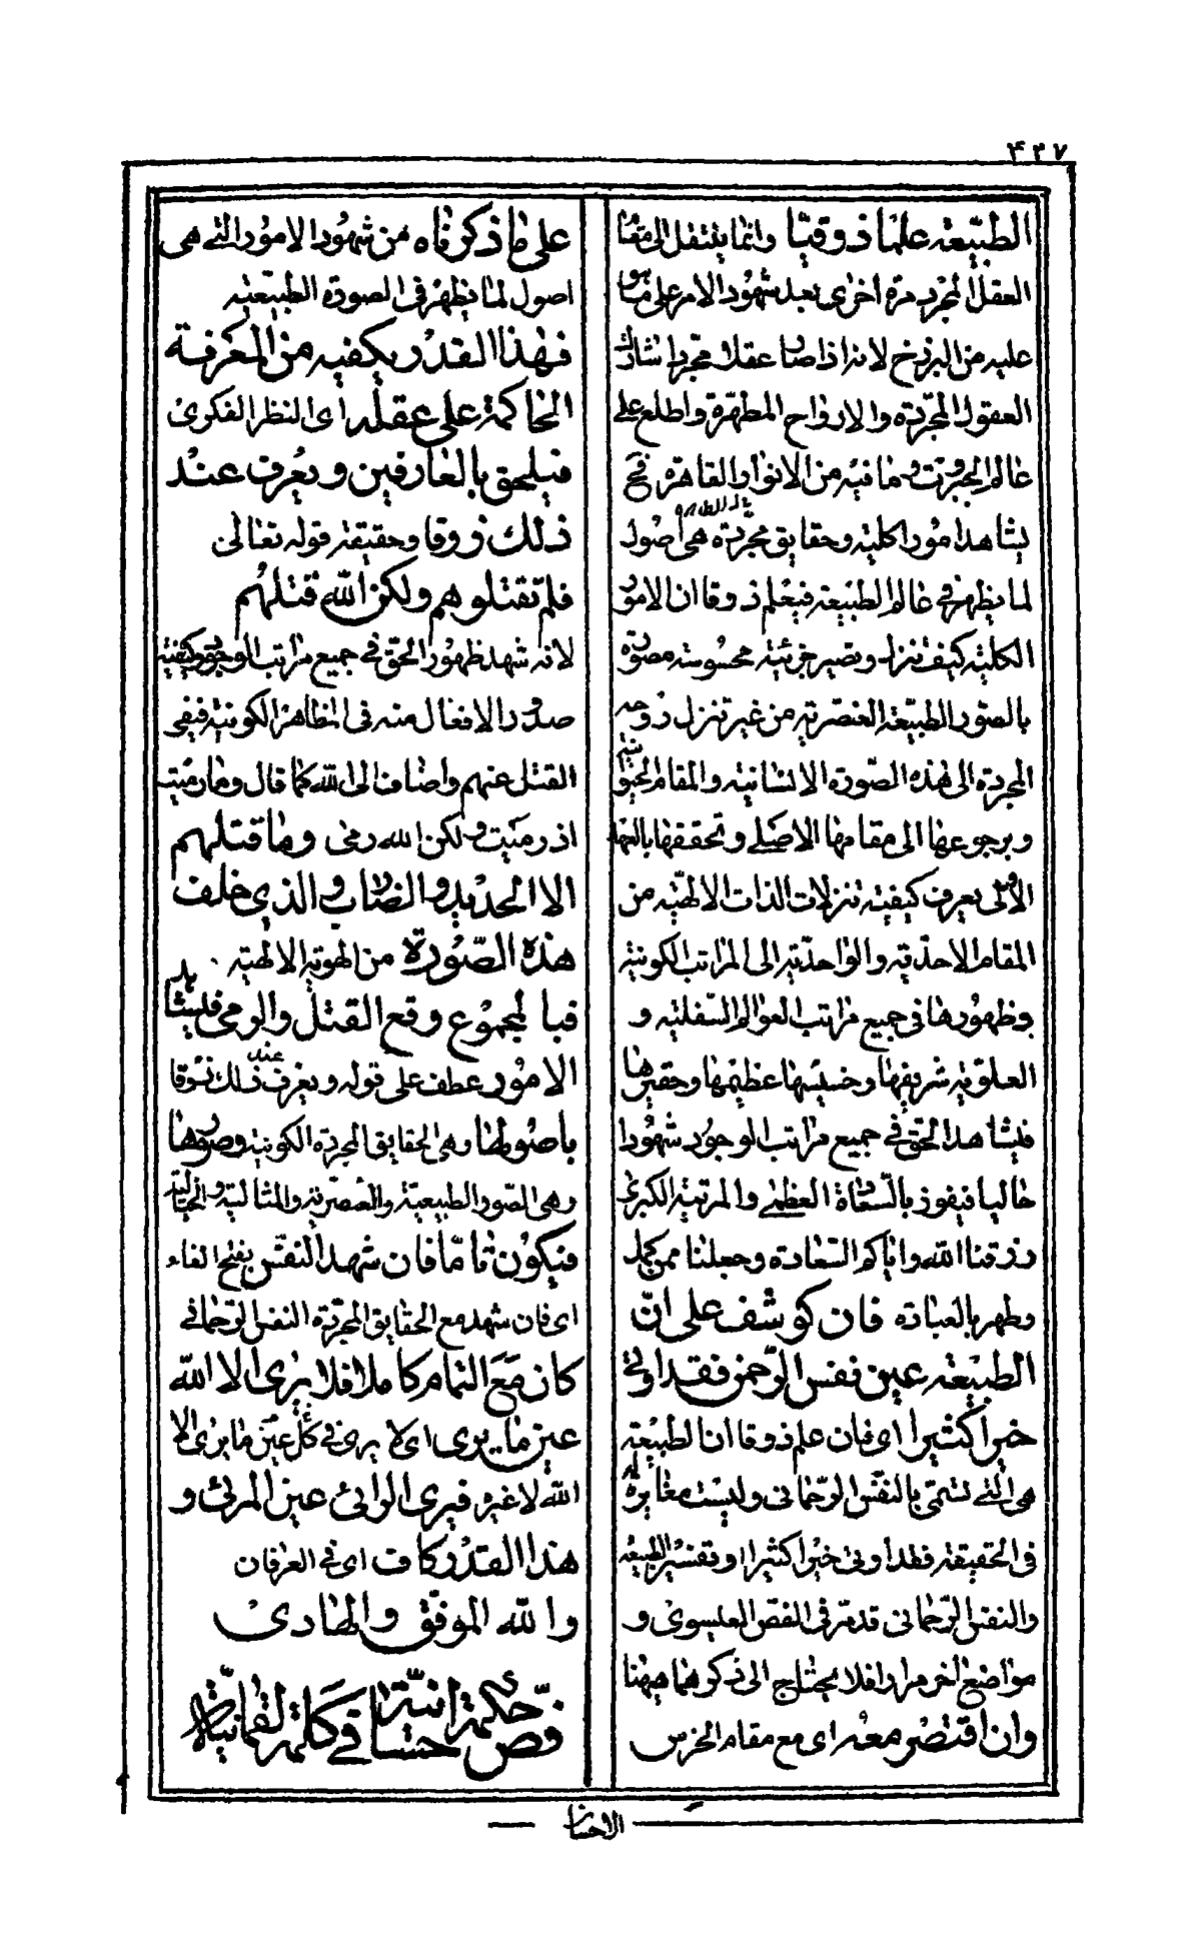 ۴۳۷
الطبيعة علما ذوقيا وانما ينتقل الى مقام
العقل المجرد مرة اخرى بعد شهود الامر على ما هو
عليه من البرزخ لانه اذا صار عقلا مجردا شارك
العقول المجردة والارواح المطهرة واطلع على
عالم الجبروت وما فيه من الانوار القاهرة فح
يشاهد امورا كلية وحقايق مجردة هى اصول
لما يظهر في عالم الطبيعة فيعلم ذوقا ان الامور
الكلية كيف تنزل وتصير جزئية محسوسة مصورة
بالصور الطبيعة العنصرية من غير تنزل روحه
المجردة الى هذه الصورة الانسانية والمقام
وبرجوعها الى مقامها الاصلى وتحققها
الاولى يعرف كيفية تنزلات الذات الالهية من
المقام الاحدية والواحدية الى المراتب الكونية
وظهورها فى جميع مراتب العوالم السفلية و
العلوية شريفها وخسيسها عظيمها وحقيرها
فيشاهد الحق في جميع مراتب الوجود شهودا
حاليا فيفوز بالسعادة العظمى والمرتبة الكبرى
رزقنا الله واياكم السعادة وجعلنا ممن كمل
وطهر بالعبادة فان كوشف على انّ
الطبيعة عين نفس الرحمن فقد اوتى
خيرا كثيرا اى فان علم ذوقا ان الطبيعة
هى التى تسمى بالنفس الرحمانى وليست مغايرة له
فى الحقيقة فقد اوتى خيرا كثيرا وتفسير الطبيعة
والنفس الرحمانى قد مر فى الفص العيسوى و
مواضع اخر مرارا فلا يحتاج الى ذكرهما هيهنا
وان اقتصر معه اى مع مقام الخرس
على ما ذكرناه من شهود الامور التى هى
اصول لما يظهر فى الصورة الطبيعية
فهذا القدر يكفيه من المعرفة
الحاكمة على عقله اى النظر الفكرى
فيلحق بالعارفين ويعرف عند
ذلك ذوقا وحقيقة قوله تعالى
فلم تقتلوهم ولكن الله قتلهم
لانه شهد ظهور الحق في جميع مراتب الوجود وكيفية
صدور الافعال منه فى المظاهر الكونية فيفى
القتل عنهم واضاف الى الله كما قال وما رميت
اذ رميت ولكن الله رمى وما قتلهم
الا الحديد والضارب والذي خلف
هذه الصورة من الهوية الالهية
فبالمجموع وقع القتل والرمى فليشاهد
الامور عطف على قوله ويعرف عند ذلك ذوقا
باصولها وهى الحقايق المجردة الكونية وصورها
وهى الصور الطبيعية والعنصرية والمثالية والخيالية
فيكون تاما فان شهد النفس بفتح الفاء
اى فان شهد مع الحقايق المجردة النفس الرحمانى
كان مع التمام كاملا فلا يرى الا الله
عين ما يرى اى لا يرى فى كل عين ما يرى الا
الله لا غير فيرى الرائى عين المرئى و
هذا القدر كاف اى فى العرفان
والله الموفق والهادى
فص حكمة احسانية في كلمة لقمانية
الاحسان